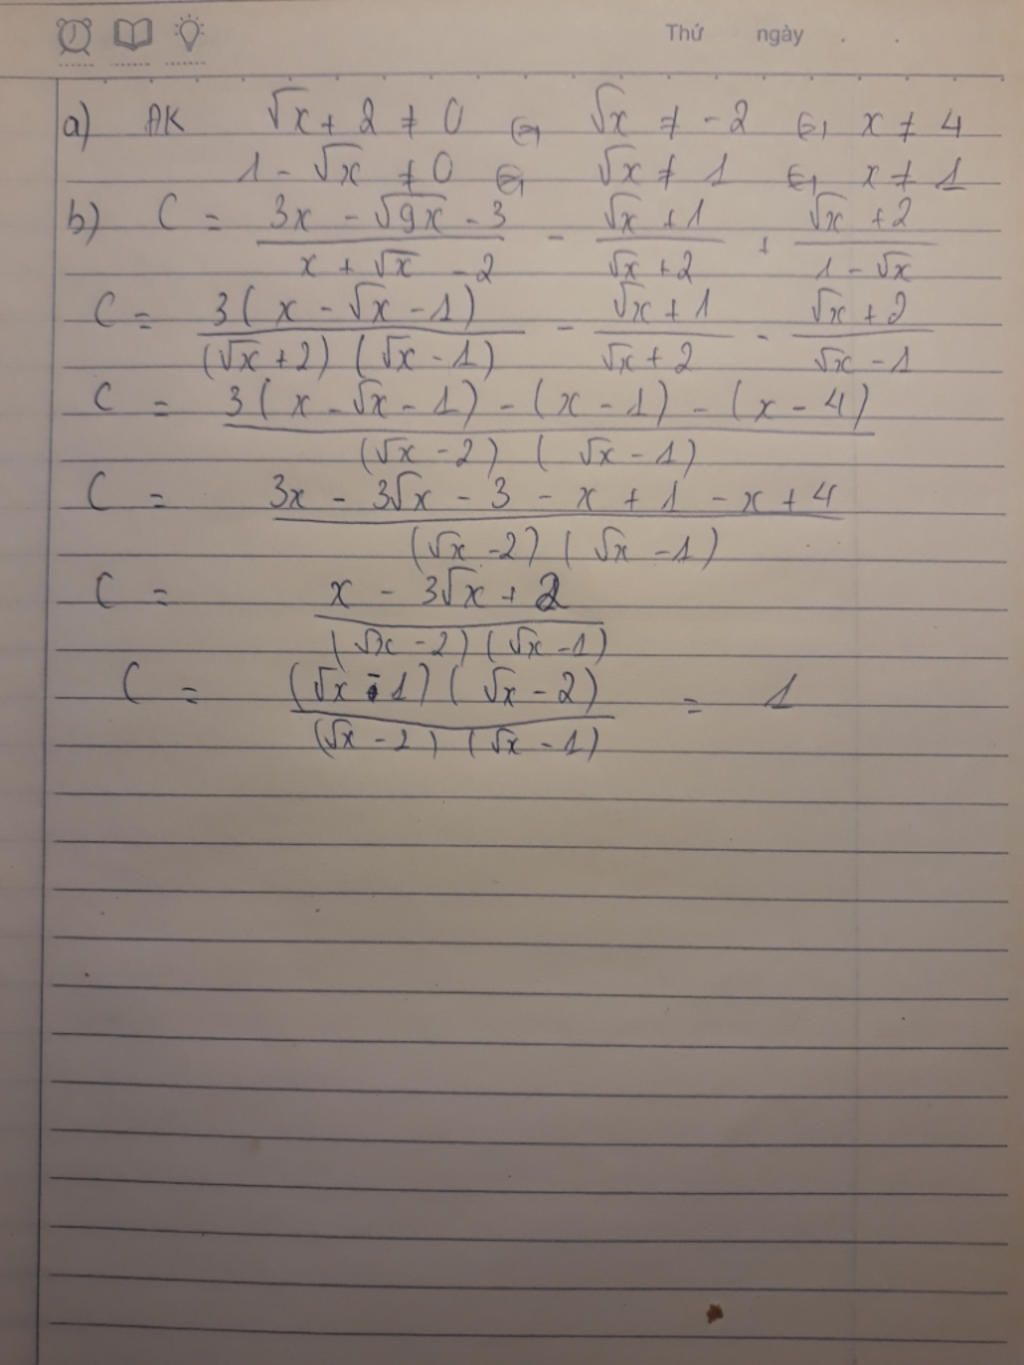 Thứ ngày . .
a) ĐK √x + 2 ≠ 0 ⇔ √x ≠ -2 ⇔ x ≠ 4
1 - √x ≠ 0 ⇔ √x ≠ 1 ⇔ x ≠ 1
b) C = (3x - √9x - 3)/(x + √x - 2) - (√x + 1)/(√x + 2) + (√x + 2)/(1 - √x)
C = 3(x - √x - 1)/(√x + 2)(√x - 1) - (√x + 1)/(√x + 2) - (√x + 2)/(√x - 1)
C = (3(x - √x - 1) - (x - 1) - (x - 4))/(√x - 2)(√x - 1)
C = (3x - 3√x - 3 - x + 1 - x + 4)/(√x - 2)(√x - 1)
C = (x - 3√x + 2)/(√x - 2)(√x - 1)
C = (√x - 1)(√x - 2)/(√x - 2)(√x - 1) = 1